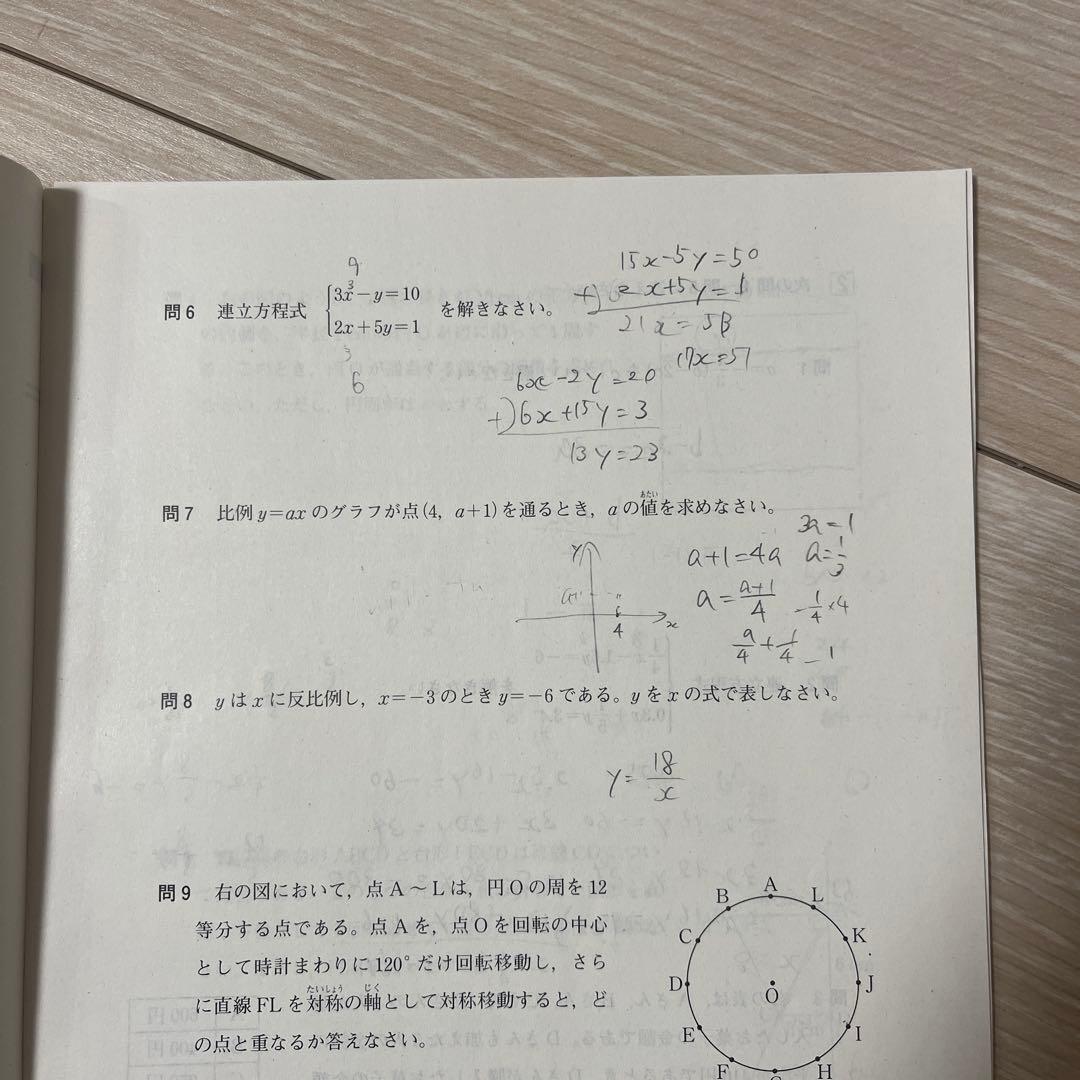 9
3
問6 連立方程式 {3x−y=10 2x+5y=1 を解きなさい。
3
6
15x-5y=50
+) 2x+5y=1
21x=53
17x=51
6x-2y=20
+) 6x+15y=3
13y=23
問7 比例 y=axのグラフが点(4, a+1)を通るとき, aの値を求めなさい。
あたい
3a=1
a+1=4a
a=1/3
a=(a+1)/4
-1/4×4
a/4+1/4
-1
y
x
4
問8 yはxに反比例し, x=−3のときy=−6である。yをxの式で表しなさい。
y=18/x
問9 右の図において, 点A〜Lは, 円Oの周を12
等分する点である。点Aを, 点Oを回転の中心
として時計まわりに120°だけ回転移動し, さら
たいしょう じく
に直線FLを対称の軸として対称移動すると, ど
の点と重なるか答えなさい。
A
B
L
C
K
D
J
O
E
I
F
H